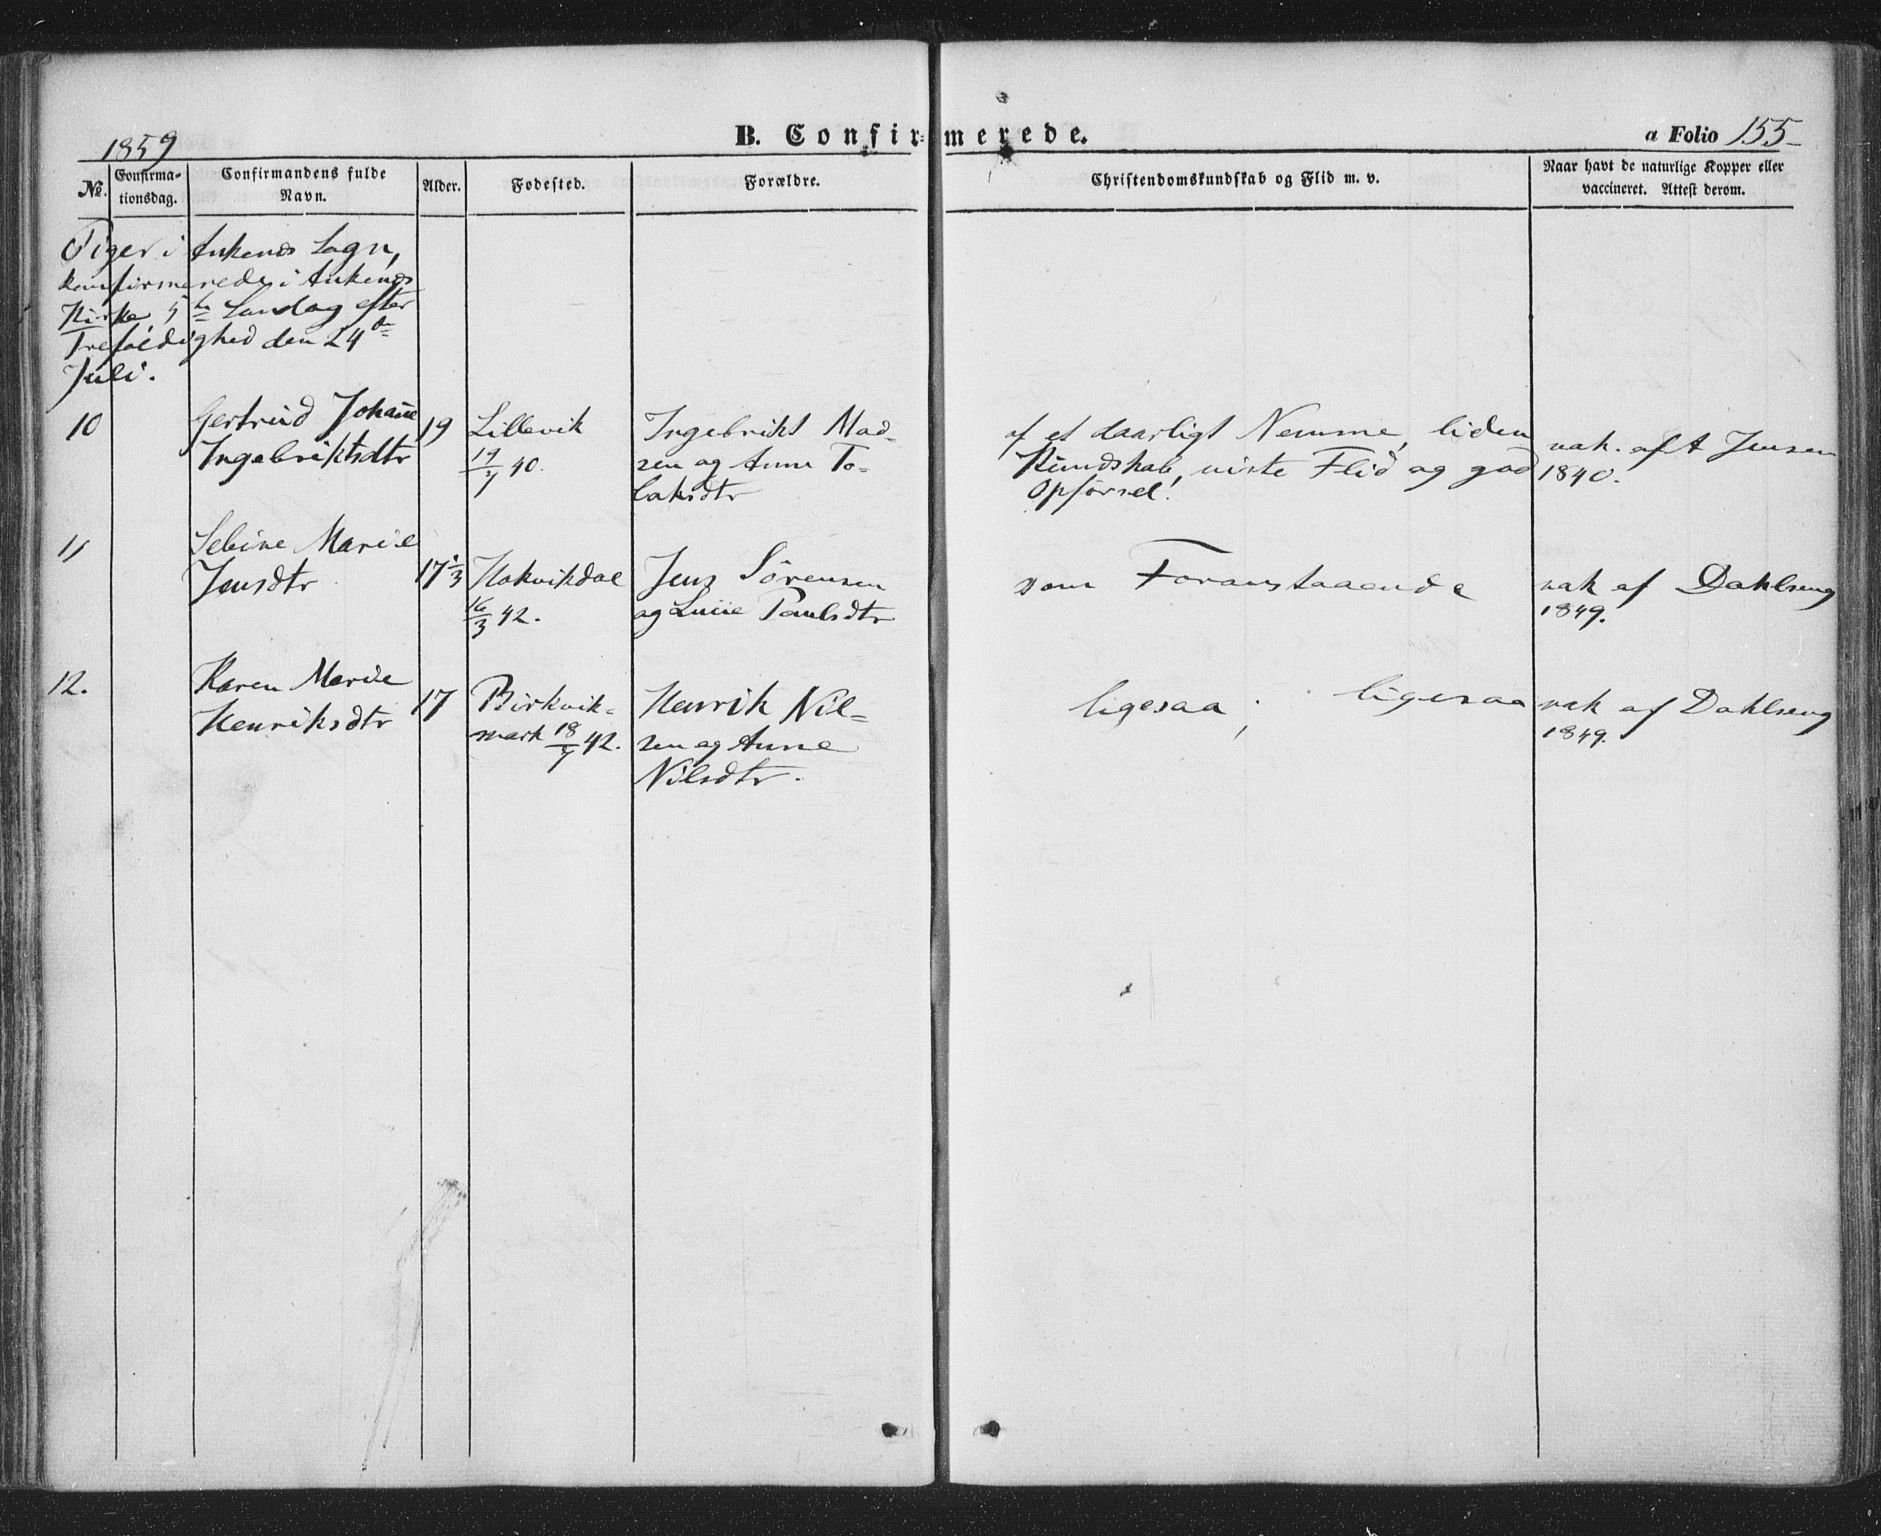 1859
B. Confirmerede.
a Folio 155
No. Confirmationsdag. Confirmandens fulde Navn. Alder. Fødested. Forældre. Christendomskundskab og Flid m. v. Naar havt de naturlige Kopper eller vaccineret. Attest derom.
Piger i Ankenes Sogn,
konfirmerede i Ankenes
Kirke 5te Søndag efter
Trefoldighed den 24de
Juli.
10 Gertrud Johane 19 Lillevik Ingebrikt Mad- af et daarligt Nemme, liden vak. af A Jensen
Ingebriktsdtr 40. sen og Anne To- Kundskab, viste Flid og god 1840.
laksdtr Opførsel.
11 Sebine Marie
Jensdtr 17 1/3 Hakvikdal Jens Sørensen som Foranstaaende vak af Dahlseng
16/3 42. og Lucie Paulsdtr 1849.
12. Karen Marie
Henriksdtr 17 Birkvik- Henrik Nil- ligesaa; ligesaa vak af Dahlseng
mark 18/7 42. sen og Anne 1849.
Nilsdtr.